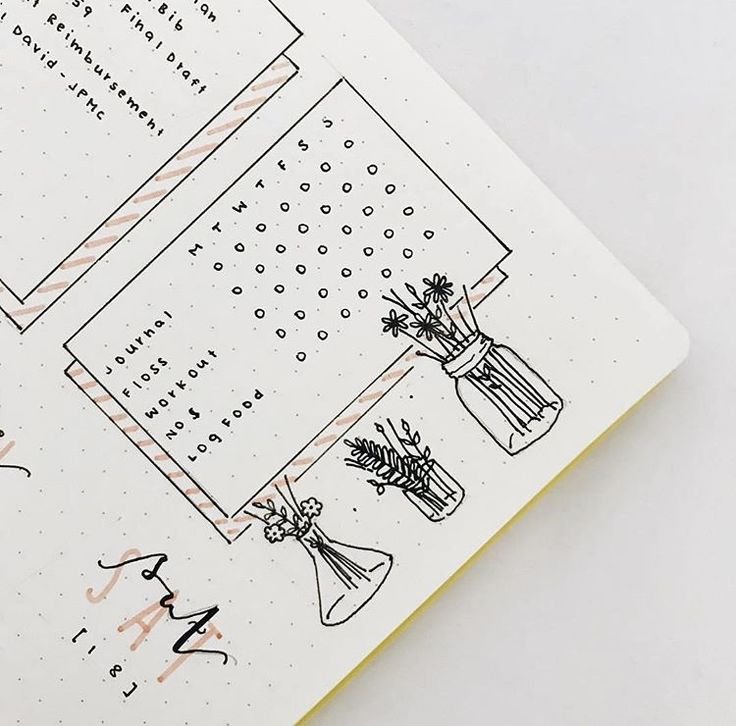 Bib
Final Draft
59
Reimbursement
David - JPMC
M T W T F S S
Journal
Floss
Workout
No $
Log Food
sat
SAT
[18]